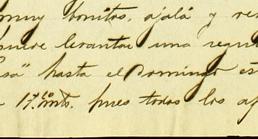 muy bonitos, ojalá y res
quiere levantar una regu
sa" hasta el Domingo es
17.50 mts. pues todos los ap